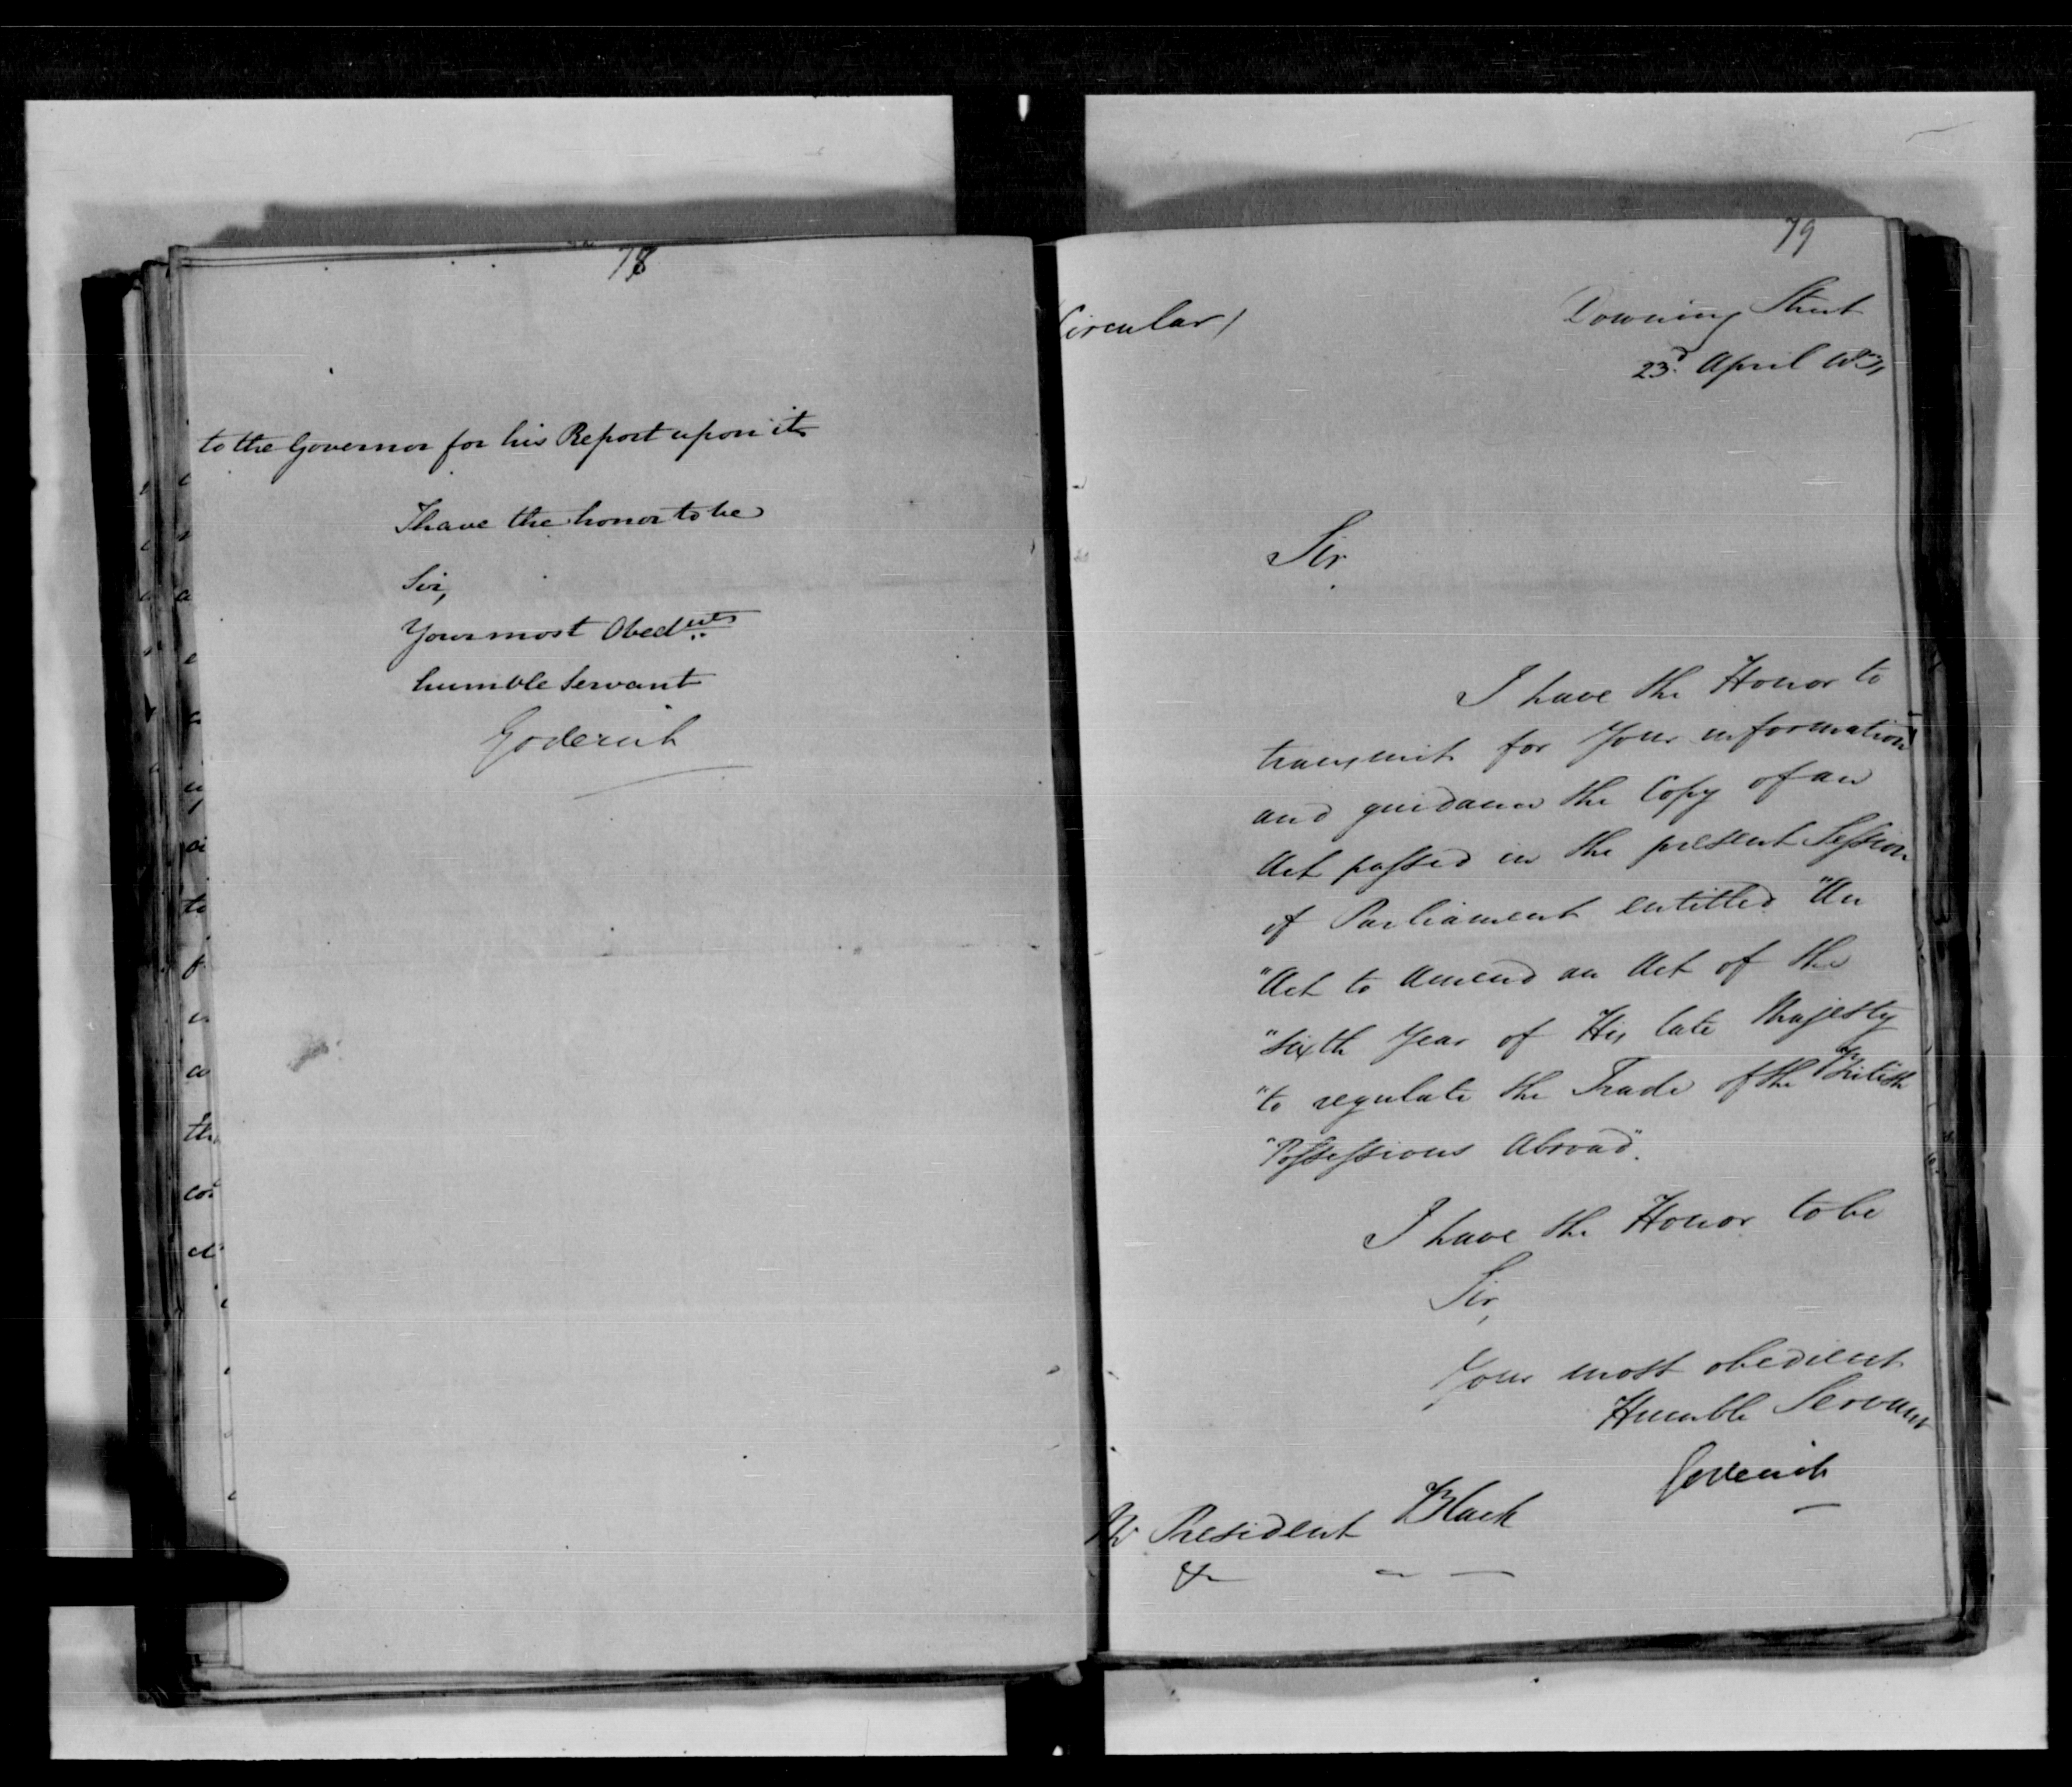 78
to the Governor for his Report upon it
I have the honor to be
Sir,
Your most Obed.nt
humble Servant
Goderich
79
(Circular)
Downing Street
23.d April 1831
Sir
I have the Honor to
transmit for Your information
and guidance the Copy of an
Act passed in the present Session
of Parliament entitled "An
"Act to Amend an Act of the
"Sixth Year of His late Majesty
"to regulate the Trade of the British
"Possessions Abroad".
I have the Honor to be
Sir,
Your most obedient
Humble Servant
Goderich
Mr President Black
&c